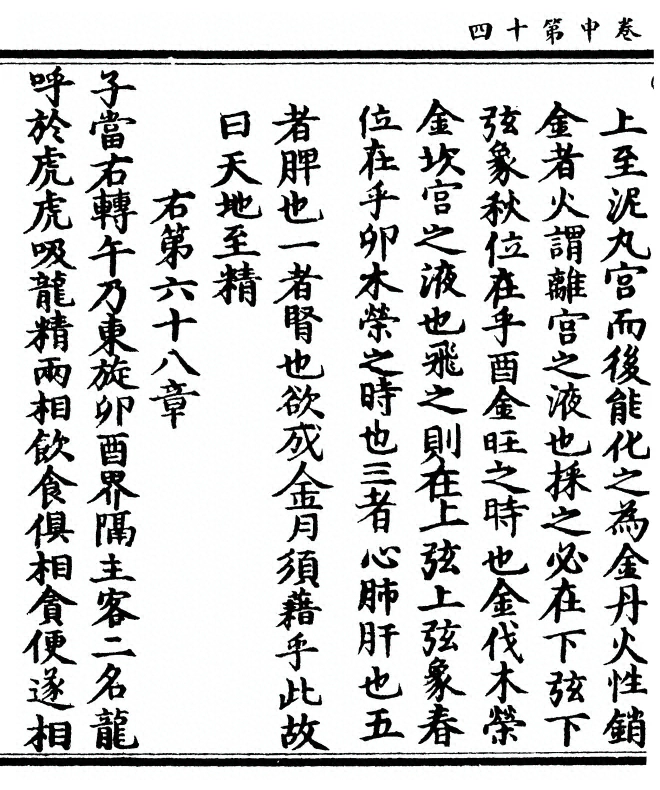 卷中第十四
上至泥丸宮而後能化之為金丹火性銷
金者火謂離宮之液也採之必在下弦下
弦象秋位在乎酉金旺之時也金伐木榮
金坎宮之液也飛之則在上弦上弦象春
位在乎卯木榮之時也三者心肺肝也五
者脾也一者腎也欲成金月須藉乎此故
曰天地至精
右第六十八章
子當右轉午乃東旋卯酉界隔主客二名龍
呼於虎虎吸龍精兩相飲食俱相貪便遂相